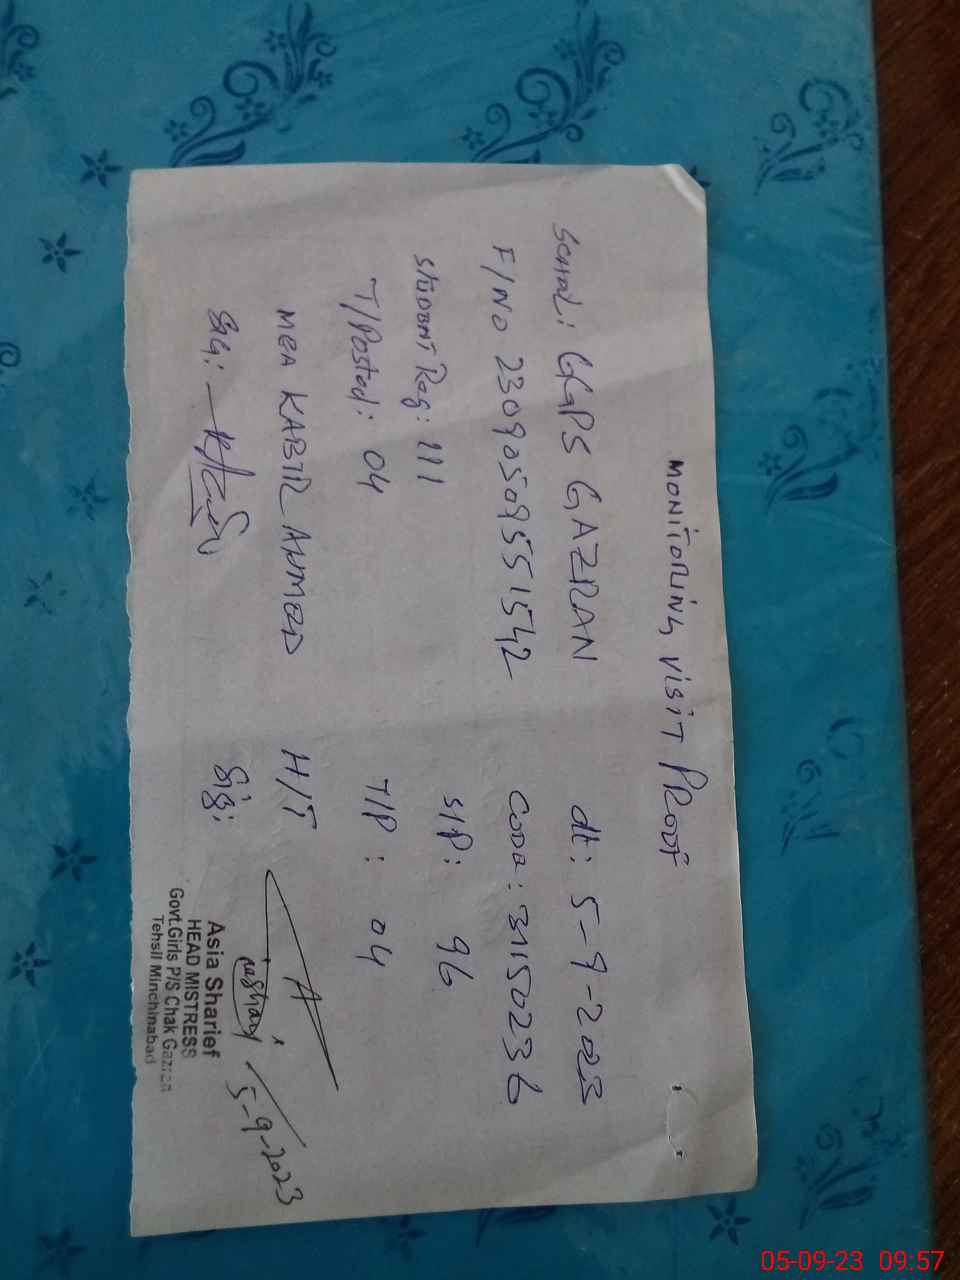 MONITORING VISIT PROOF
School: GGPS GAZRAN dt: 5-9-2023
F/NO 23090509551542 CODE: 31150236
STUDENT Reg: 111 S/P: 96
T/Posted: 04 T/P: 04
MEA KABIR AHMED H/T
SIG: Sig:
5-9-2023
Asia Sharief
HEAD MISTRESS
Govt.Girls P/S Chak Gazran
Tehsil Minchinabad
05-09-23 09:57